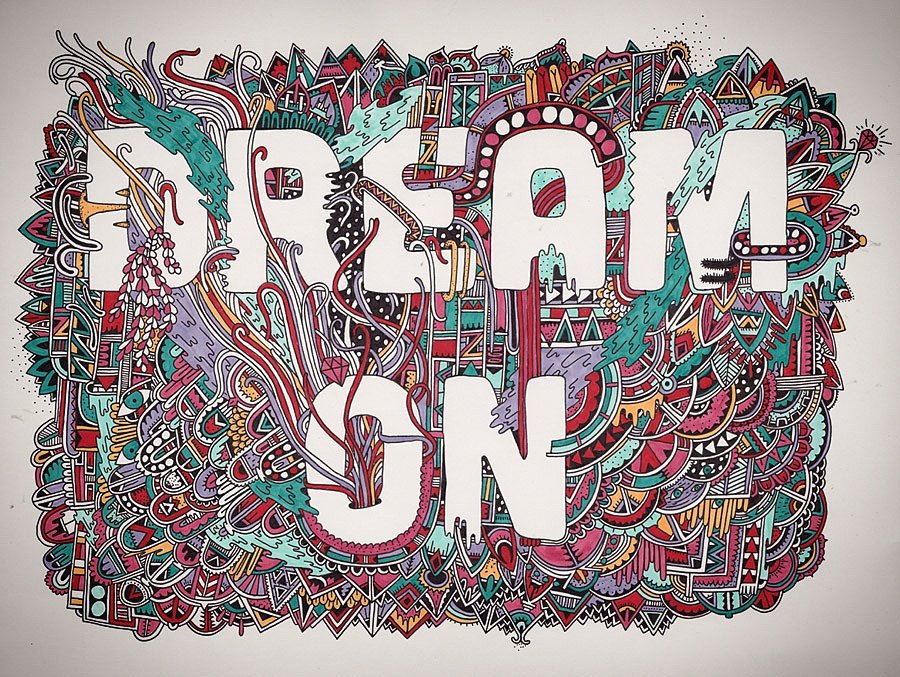 DREAM
ON